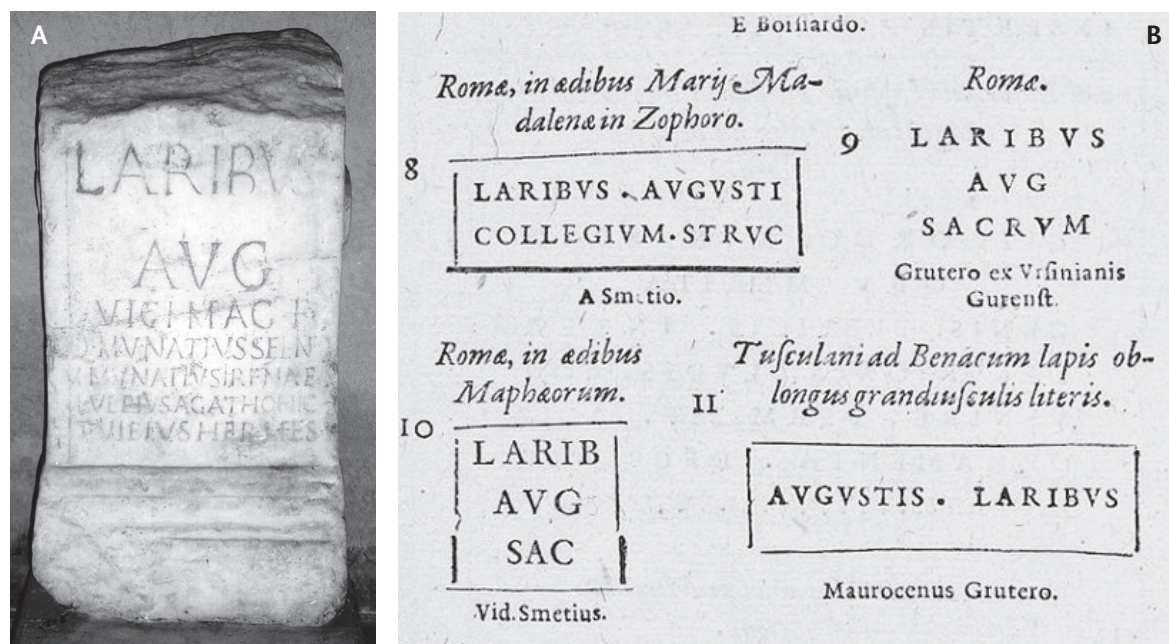 A
LARIBVS
AVG
VICI MAC
MVNATIVS
MVNATIVS IRENAE
AGATHONIC
HERMES
B
E Boissardo.
Romæ, in ædibus Marij Ma-
dalenæ in Zophoro.
8
LARIBVS . AVGVSTI
COLLEGIVM . STRVC
A Smetio.
Romæ.
9
LARIBVS
AVG
SACRVM
Grutero ex Vrsinianis
Gutenst.
Romæ, in ædibus
Maphæorum.
10
LARIB
AVG
SAC
Vid. Smetius.
Tuſculani ad Benacum lapis ob-
longus grandiuſculis literis.
11
AVGVSTIS . LARIBVS
Maurocenus Grutero.